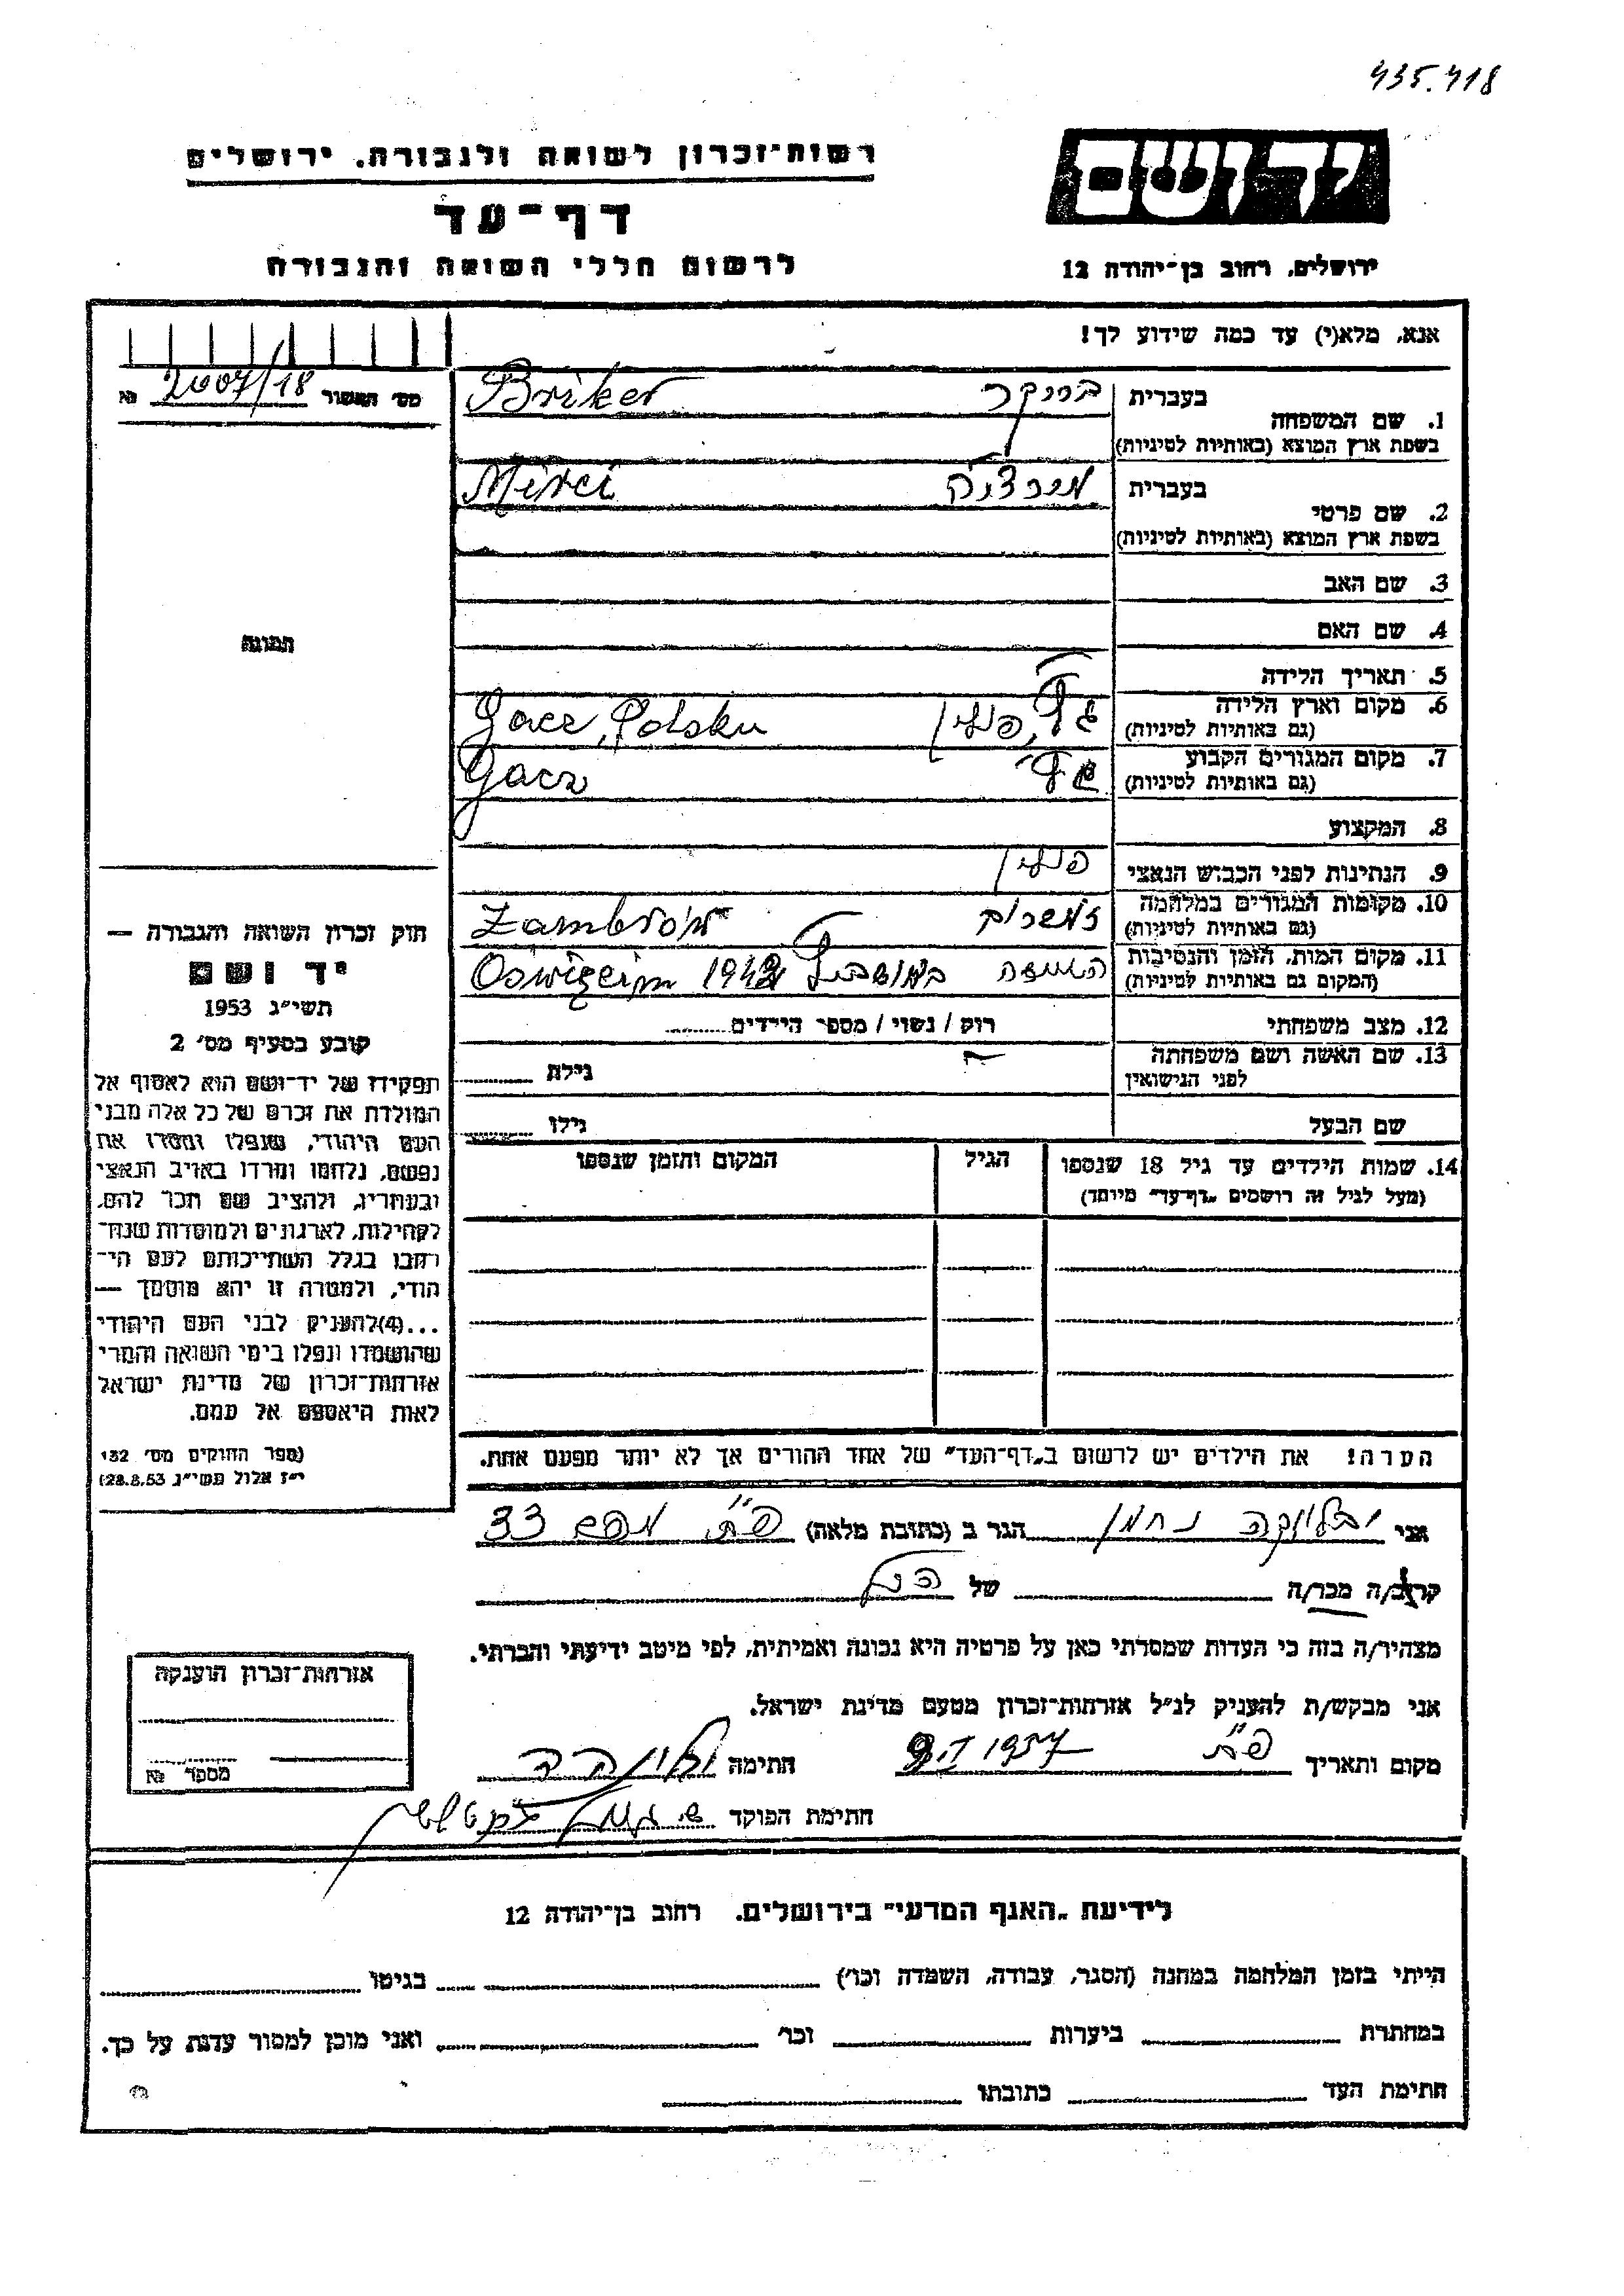 435.418
יד ושם
רשות־זכרון לשואה ולגבורה. ירושלים
דף־עד
ירושלים, רחוב בן־יהודה 12
לרשום חללי השואה והגבורה
אנא, מלא(י) עד כמה שידוע לך!
מס׳ האשור № 2007/18
1. שם המשפחה בעברית בריקר Briker
בשפת ארץ המוצא (באותיות לטיניות)
2. שם פרטי בעברית Mirci
בשפת ארץ המוצא (באותיות לטיניות)
3. שם האב
4. שם האם
5. תאריך הלידה
6. מקום וארץ הלידה פולין Gacz, Polska
(גם באותיות לטיניות)
7. מקום המגורים הקבוע Gacz
(גם באותיות לטיניות)
8. המקצוע
9. הנתינות לפני הכבוש הנאצי פולין
10. מקומות המגורים במלחמה Zambrów
(גם באותיות לטיניות)
11. מקום המות, הזמן והנסיבות Oswięcim 1942
(המקום גם באותיות לטיניות)
12. מצב משפחתי רוק / נשוי / מספר הילדים
13. שם האשה ושם משפחתה גילה
לפני הנישואין
שם הבעל גילו
14. שמות הילדים עד גיל 18 שנספו הגיל המקום והזמן שנספו
(מעל לגיל זה רושמים „דף־עד” מיוחד)
הערה! את הילדים יש לרשום ב„דף־העד” של אחד ההורים אך לא יותר מפעם אחת.
תמונה
חוק זכרון השואה והגבורה —
יד ושם
תשי״ג 1953
קובע בסעיף מס׳ 2
תפקידו של יד־ושם הוא לאסוף אל
המולדת את זכרם של כל אלה מבני
העם היהודי, שנפלו ומסרו את
נפשם, נלחמו ומרדו באויב הנאצי
ובעוזריו, ולהציב שם וזכר להם,
לקהילות, לארגונים ולמוסדות שנח־
רבו בגלל השתייכותם לעם הי־
הודי, ולמטרה זו יהא מוסמך —
...(4)להעניק לבני העם היהודי
שהושמדו ונפלו בימי השואה והמרי
אזרחות־זכרון של מדינת ישראל
לאות היאספם אל עמם.
(ספר החוקים מס׳ 132
י״ז אלול תשי״ג 28.8.53)
אני נחמן הגר ב (כתובת מלאה) פ״ת 33
קרוב/ה מכר/ה של
מצהיר/ה בזה כי העדות שמסרתי כאן על פרטיה היא נכונה ואמיתית, לפי מיטב ידיעתי והכרתי.
אני מבקש/ת להעניק לנ״ל אזרחות־זכרון מטעם מדינת ישראל.
מקום ותאריך פ״ת 1957 חתימה
חתימת הפוקד
אזרחות־זכרון הוענקה
מספר №
לידיעת „האגף המדעי” בירושלים. רחוב בן־יהודה 12
הייתי בזמן המלחמה במחנה (הסגר, עבודה, השמדה וכו׳) בגיטו
במחתרת ביערות וכו׳ ואני מוכן למסור עדות על כך.
חתימת העד כתובתו